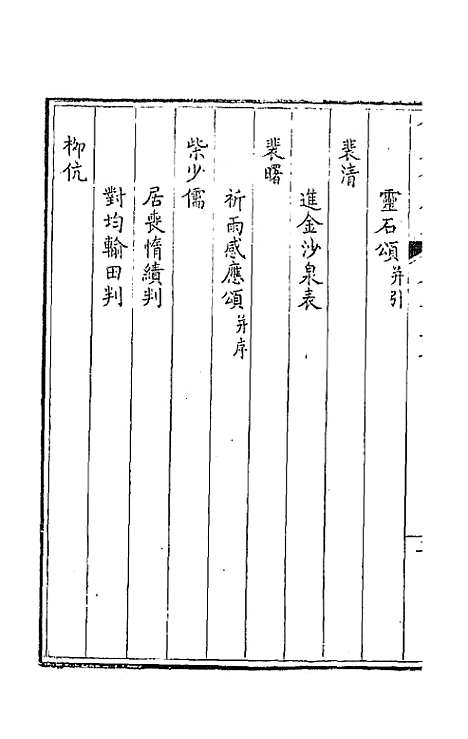 靈石頌并引
裴清
進金沙泉表
裴曙
祈雨感應頌并序
柴少儒
居喪惰績判
對均輸田判
柳伉